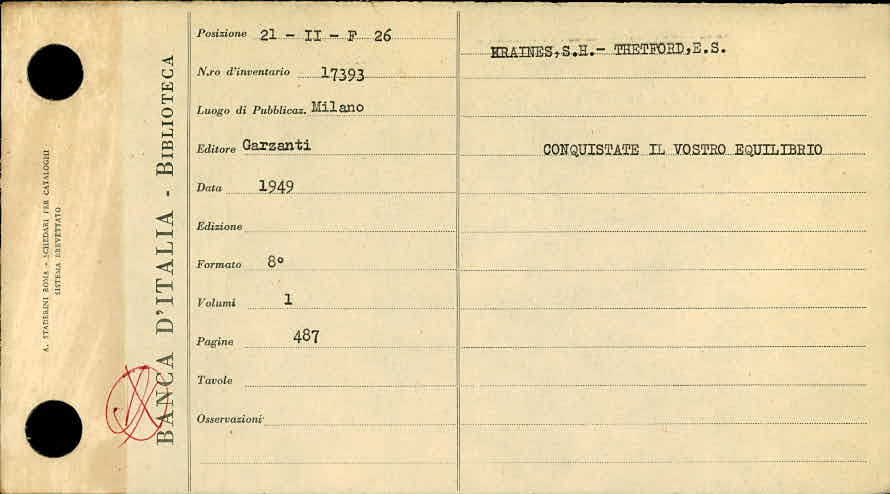 A. STADERINI ROMA - SCHEDARI PER CATALOGHI
SISTEMA BREVETTATO
BANCA D'ITALIA - BIBLIOTECA
Posizione 21 - II - F 26
N.ro d'inventario 17393
Luogo di Pubblicaz. Milano
Editore Garzanti
Data 1949
Edizione
Formato 8°
Volumi 1
Pagine 487
Tavole
Osservazioni
KRAINES,S.H.- THETFORD,E.S.
CONQUISTATE IL VOSTRO EQUILIBRIO